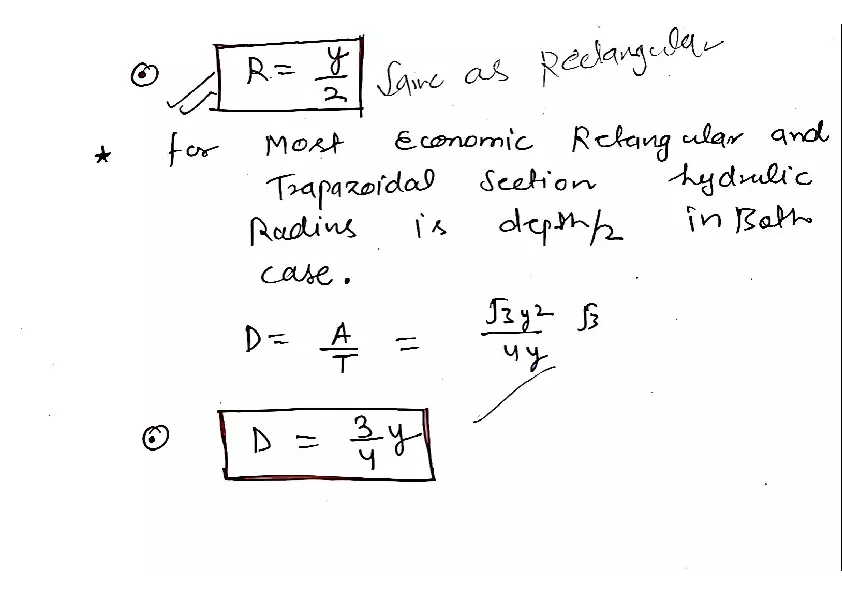 R = y/2 Same as Rectangular
* for Most Economic Retangular and
Trapazoidal Section hydraulic
Radius is depth/2 in Both
case.
D = A/T = √3y2/4y √3
D = 3/4 y